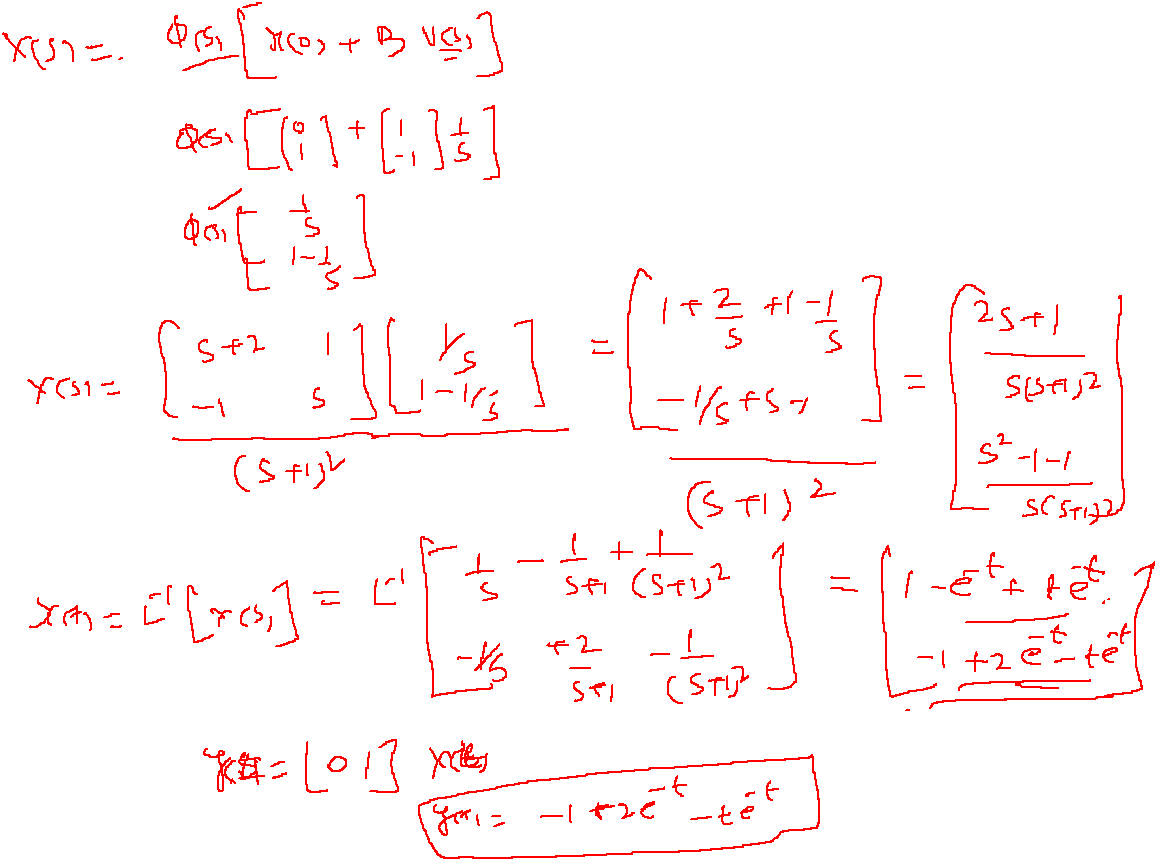 X(s) = . Φ(s) [x(0) + B U(s)]
Φ(s) [[0; 1] + [1; -1] 1/s]
Φ(s) [1/s; 1 - 1/s]
X(s) = [s+2 1; -1 s] [1/s; 1 - 1/s] / (s+1)² = [1 + 2/s + 1 - 1/s; -1/s + s - 1] / (s+1)² = [2s+1 / s(s+1)²; s² - 1 - 1 / s(s+1)²]
x(t) = L⁻¹[x(s)] = L⁻¹ [1/s - 1/(s+1) + 1/(s+1)²; -1/s + 2/(s+1) - 1/(s+1)²] = [1 - e^-t + te^-t; -1 + 2e^-t - te^-t]
y(t) = [0 1] x(t)
y(t) = -1 + 2e^-t - te^-t